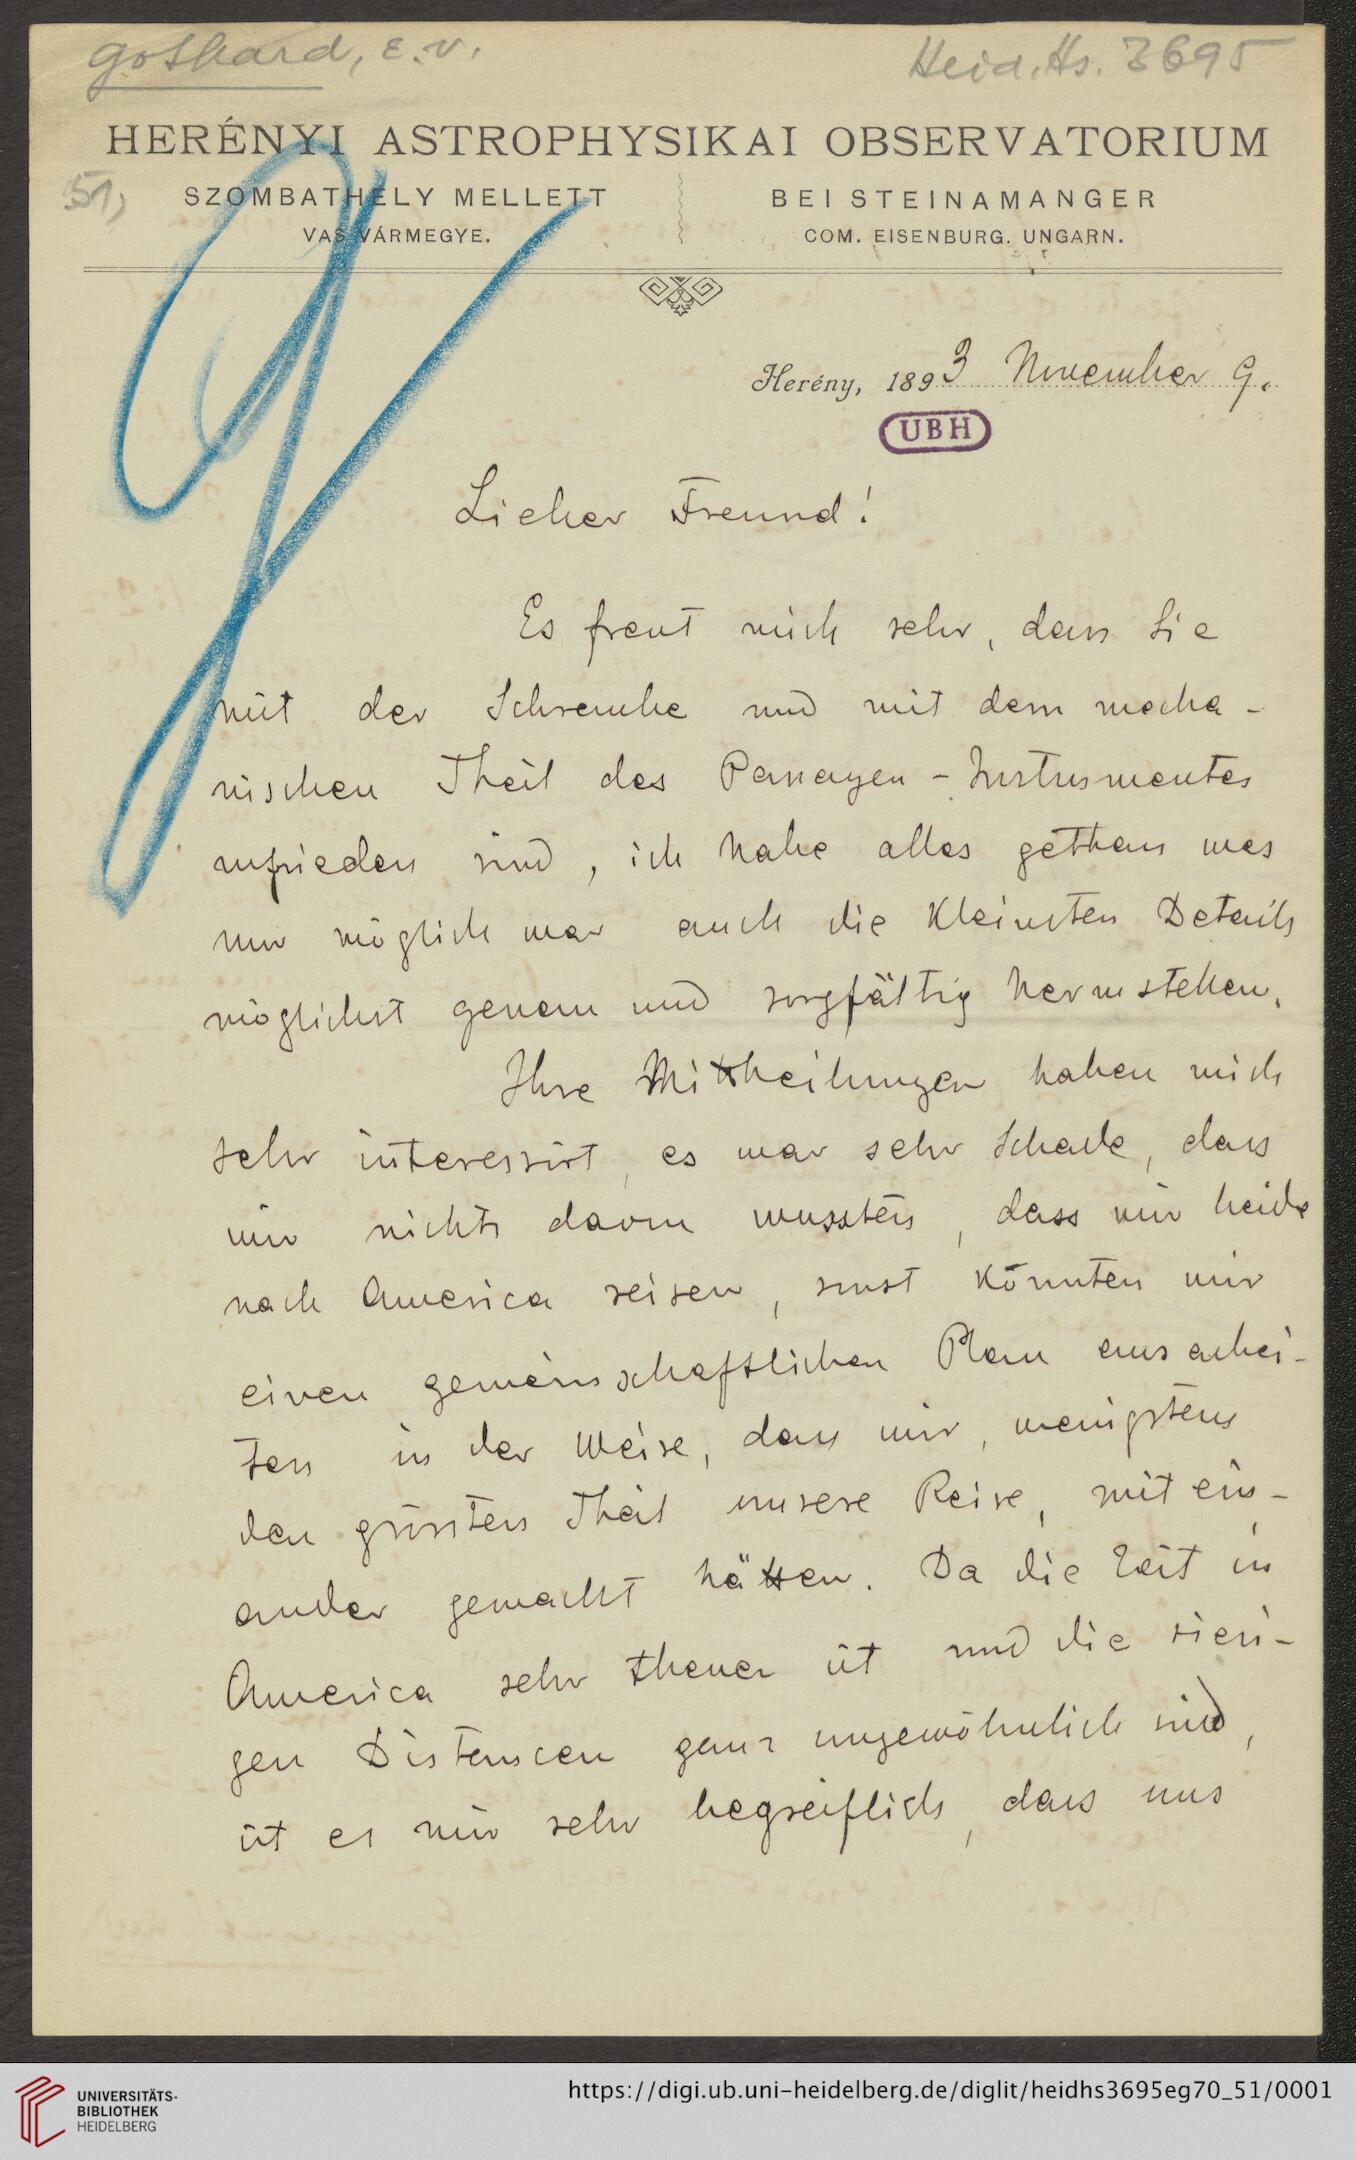 Gothard, E. v.
Heid. Hs. 3695
HERÉNYI ASTROPHYSIKAI OBSERVATORIUM
51)
SZOMBATHELY MELLETT
VAS VÁRMEGYE.
BEI STEINAMANGER
COM. EISENBURG. UNGARN.
Herény, 1893 November 9.
UBH
Lieber Freund!
Es freut mich sehr, dass Sie
mit der Schraube und mit dem mecha-
nischen Theil des Passagen-Instrumentes
zufrieden sind, ich habe alles gethan was
nur möglich war auch die kleinsten Details
möglichst genau und sorgfältig herzustellen.
Ihre Mittheilungen haben mich
sehr interessirt, es war sehr Schade, dass
wir nichts davon wussten, dass wir beide
nach America reisen, sonst könnten wir
einen gemeinschaftlichen Plan ausarbei-
ten in der Weise, dass wir, wenigstens
den grössten Theil unsere Reise, mitein-
ander gemacht hätten. Da die Zeit in
America sehr theuer ist und die riesi-
gen Distancen ganz ungewöhnlich sind,
ist es mir sehr begreiflich, dass uns
UNIVERSITÄTS-
BIBLIOTHEK
HEIDELBERG
https://digi.ub.uni-heidelberg.de/diglit/heidhs3695eg70_51/0001